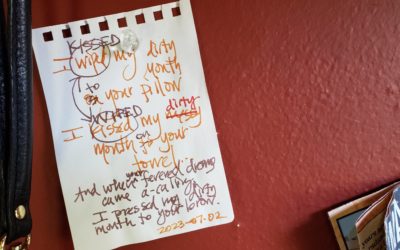 KISSED
I wiped my dirty
mouth
to on your pillow
WIPED dirty
I kissed my
mouth on to your
towel
And when fevered dreams
came a-calling,
I pressed my dirty
mouth to your brow.
2023-07-02